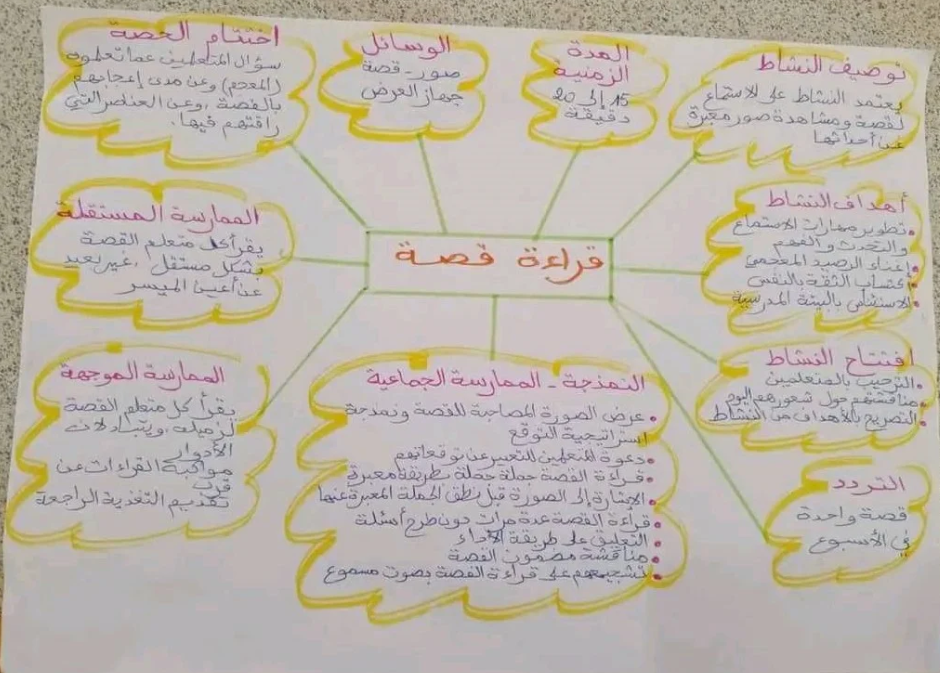 قراءة قصة
توصيف النشاط
يعتمد النشاط على الاستماع
لقصة ومشاهدة صور معبرة
عن أحداثها
المدة
الزمنية
15 إلى 20
دقيقة
الوسائل
صور - قصة
جهاز العرض
اختتام الحصة
سؤال المتعلمين عما تعلموه
(المعجم) وعن مدى إعجابهم
بالقصة، وعن العناصر التي
راقتهم فيها.
أهداف النشاط
• تطوير مهارات الاستماع
والتحدث والفهم
• إغناء الرصيد المعجمي
• اكتساب الثقة بالنفس
• الاستئناس بالبيئة المدرسية
الممارسة المستقلة
يقرأ كل متعلم القصة
بشكل مستقل، غير بعيد
عن أعين الميسر
افتتاح النشاط
• الترحيب بالمتعلمين
• مناقشتهم حول شعورهم اليوم
• التصريح بالأهداف من النشاط
النمذجة - الممارسة الجماعية
• عرض الصورة المصاحبة للقصة ونمذجة
استراتيجية التوقع
• دعوة المتعلمين للتعبير عن توقعاتهم
• قراءة القصة جملة جملة بطريقة معبرة
• الإشارة إلى الصورة قبل نطق الجملة المعبرة عنها
• قراءة القصة عدة مرات دون طرح أسئلة
• التعليق على طريقة الأداء
• مناقشة مضمون القصة
• تشجيعهم على قراءة القصة بصوت مسموع
الممارسة الموجهة
يقرأ كل متعلم القصة
لزميله، ويتبادلان
الأدوار
مواكبة القراءات عن
قرب
تقديم التغذية الراجعة
التردد
قصة واحدة
في الأسبوع